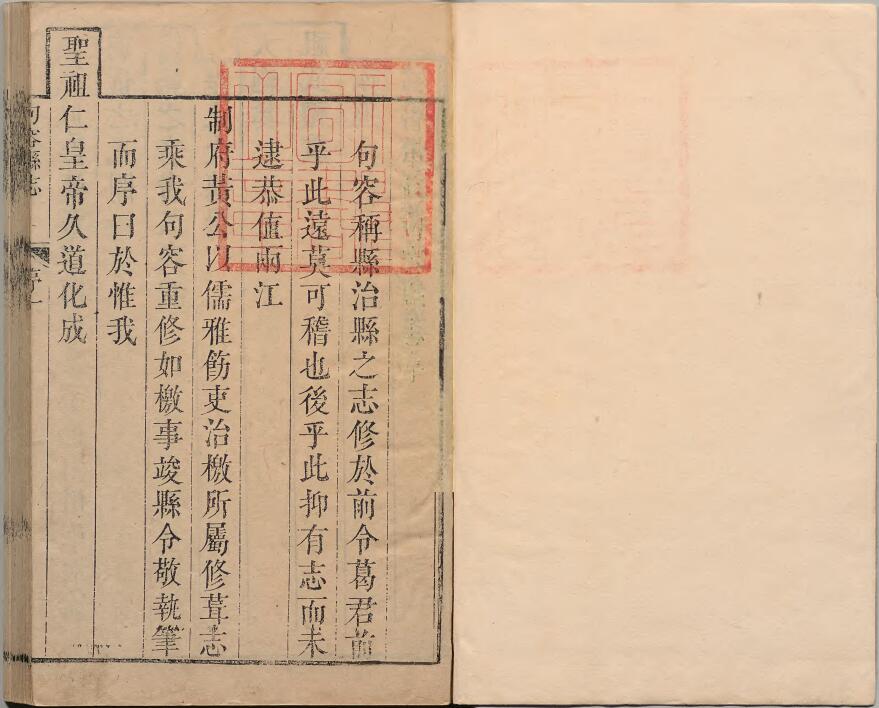 句容稱縣治縣之志修於前令葛君前
乎此遠莫可稽也後乎此抑有志而未
逮恭值兩江
制府黄公以儒雅飭吏治檄所屬修葺志
乘我句容重修如檄事竣縣令敬執筆
而序曰於惟我
聖祖仁皇帝久道化成
句容縣志
序一